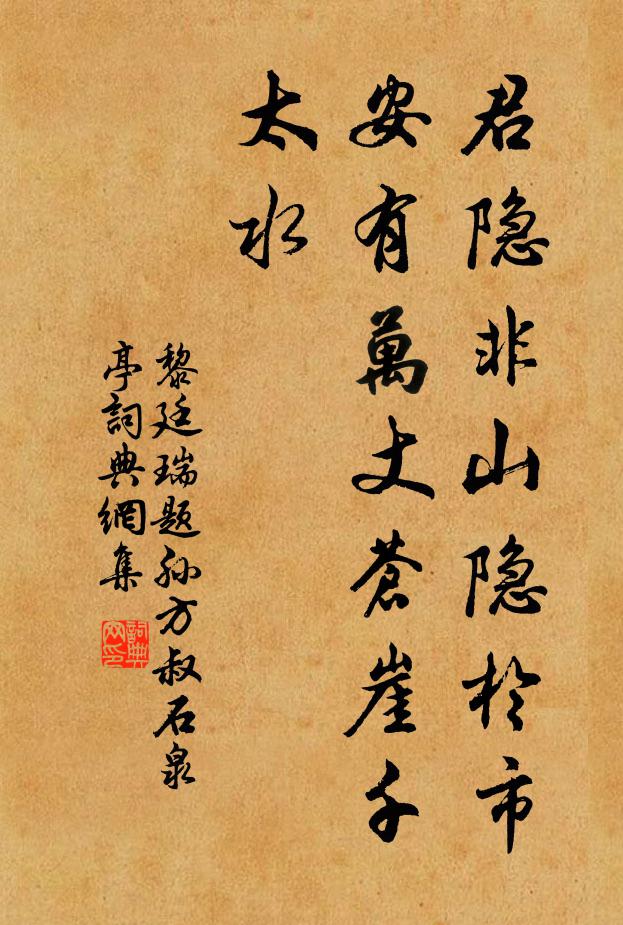 君隐非山隐於市
安有萬丈蒼崖千
太水
黎廷瑞题孙方叔石泉
亭詞典網集
詞典
网印